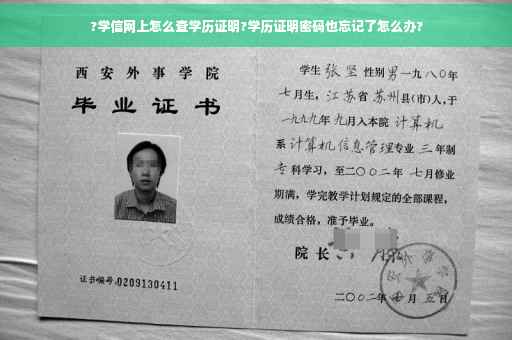 ?学信网上怎么查学历证明?学历证明密码也忘记了怎么办?
西安外事学院
毕业证书
证书编号:0209130411
学生 张坚 性别 男 一九八〇年
七月生，江苏省 苏州县(市)人，于
一九九九年 九月入本院 计算机
系 计算机信息管理专业 三 年制
专 科学习，至二〇〇二年 七月修业
期满，学完教学计划规定的全部课程，
成绩合格，准予毕业。
院 长
二〇〇二年 月 五日